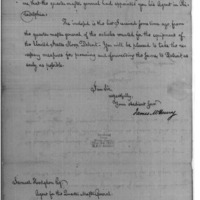 me, that the quarter master general had appointed you his Agent in the
The inclosed is the list received from time ago from
the quarter master general of the articles wanted for the equipment of
the United States Sloop Detroit. You will be pleased to take the ne-
cessary measures for procuring and forwarding the same to Detroit, as
early as possible.
I am Sir
respectfully,
Your obedient Servt
James McHenry
Samuel Hodgdon Esq
Agent for the Quarter Master General